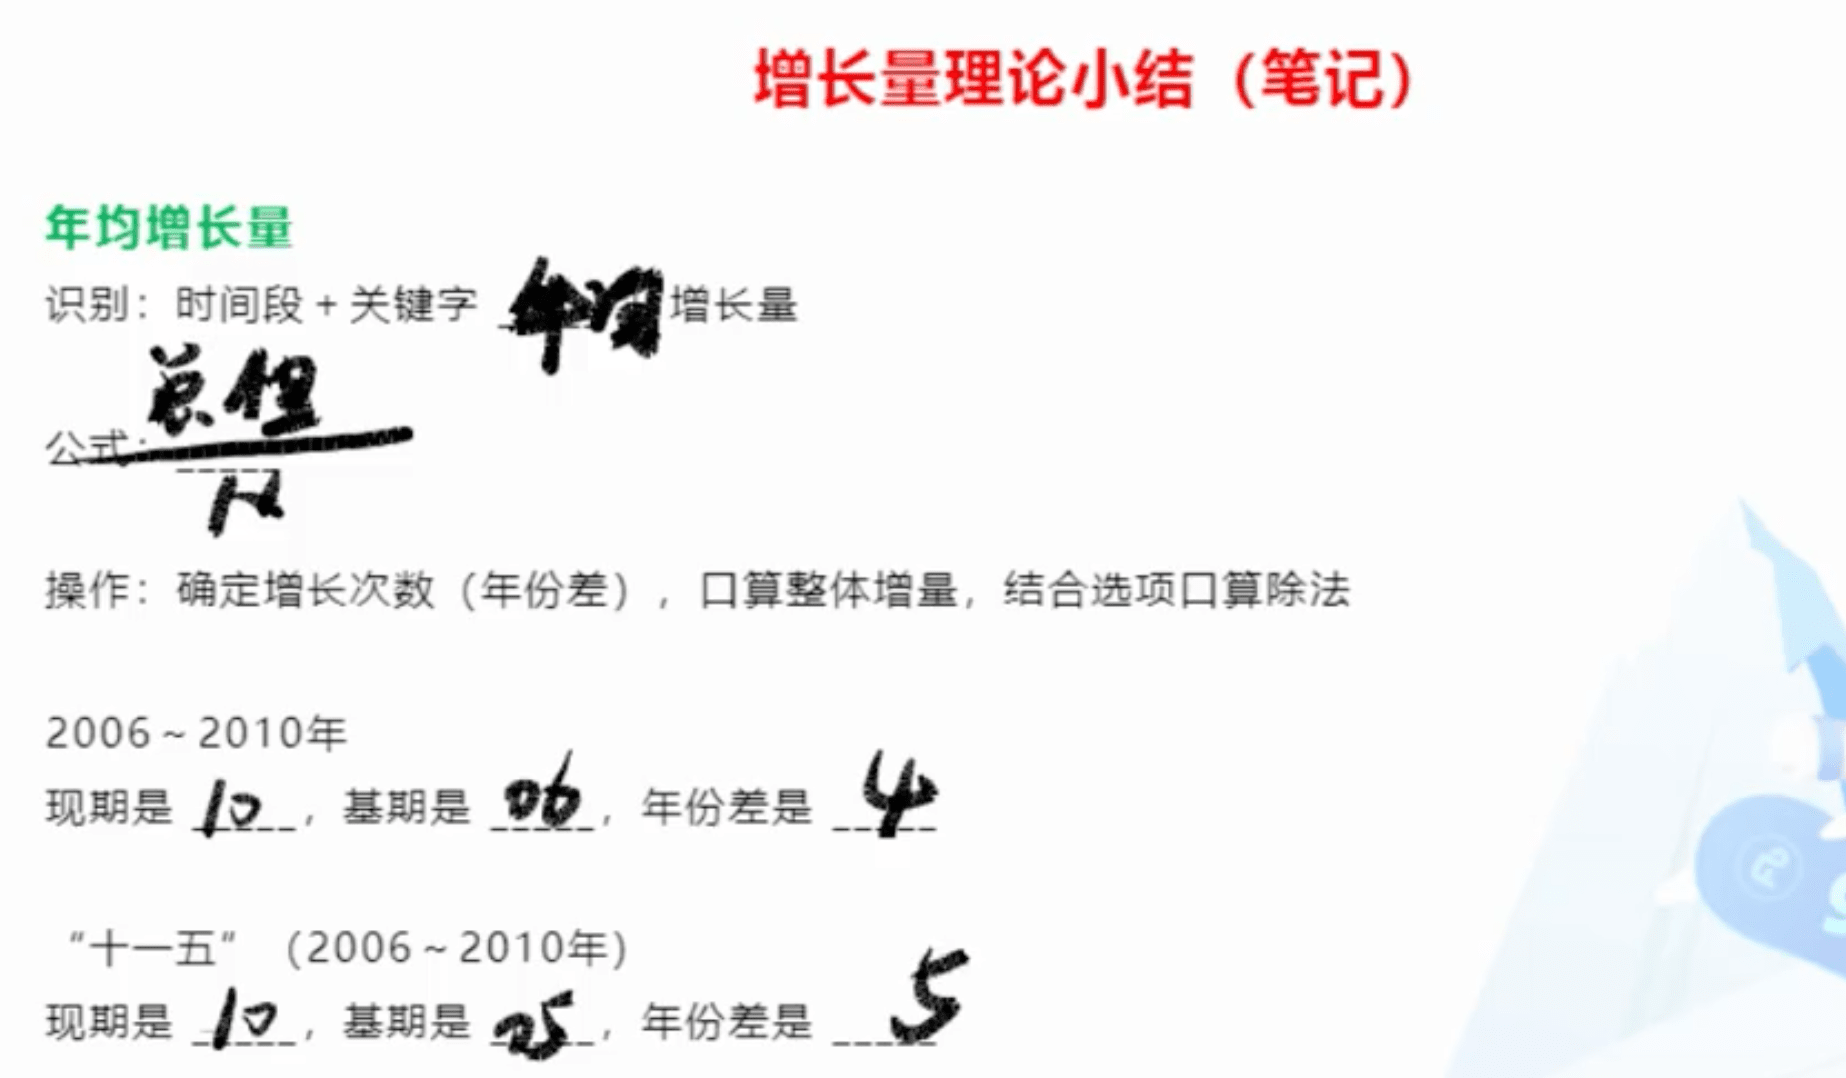 增长量理论小结（笔记）
年均增长量
识别：时间段+关键字 年均 增长量
总增
公式：
n
操作：确定增长次数（年份差），口算整体增量，结合选项口算除法
2006～2010年
现期是 10，基期是 06，年份差是 4
“十一五”（2006～2010年）
现期是 10，基期是 05，年份差是 5